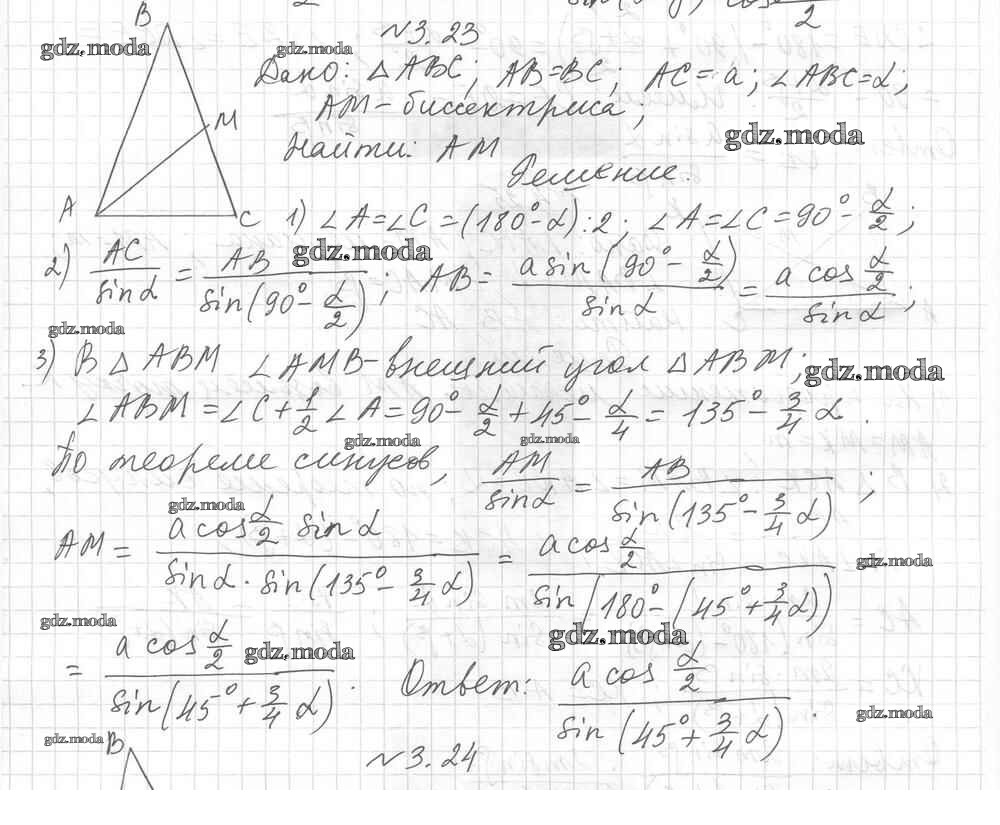 B
№3.23
gdz.moda gdz.moda
Дано: △ABC; AB=BC; AC=a; ∠ABC=α;
AM - биссектриса;
M gdz.moda
Найти: AM
Решение.
A C 1) ∠A=∠C=(180°-α):2; ∠A=∠C=90°- α/2;
gdz.moda
2) AC/sinα = AB/sin(90°- α/2); AB= a sin(90°- α/2)/sinα = a cos α/2 / sinα;
gdz.moda
3) В △ABM ∠AMB - внешний угол △ABM; gdz.moda
∠ABM=∠C+ 1/2 ∠A=90°- α/2 +45°- α/4 = 135°- 3/4 α.
gdz.moda gdz.moda
По теореме синусов, AM/sinα = AB/sin(135°- 3/4 α);
gdz.moda
AM = a cos α/2 sinα / sinα · sin(135°- 3/4 α) = a cos α/2 / sin(180°-(45°+ 3/4 α)) =
gdz.moda
gdz.moda gdz.moda
= a cos α/2 / sin(45°+ 3/4 α). Ответ: a cos α/2 / sin(45°+ 3/4 α).
gdz.moda
gdz.moda
gdz.moda B №3.24